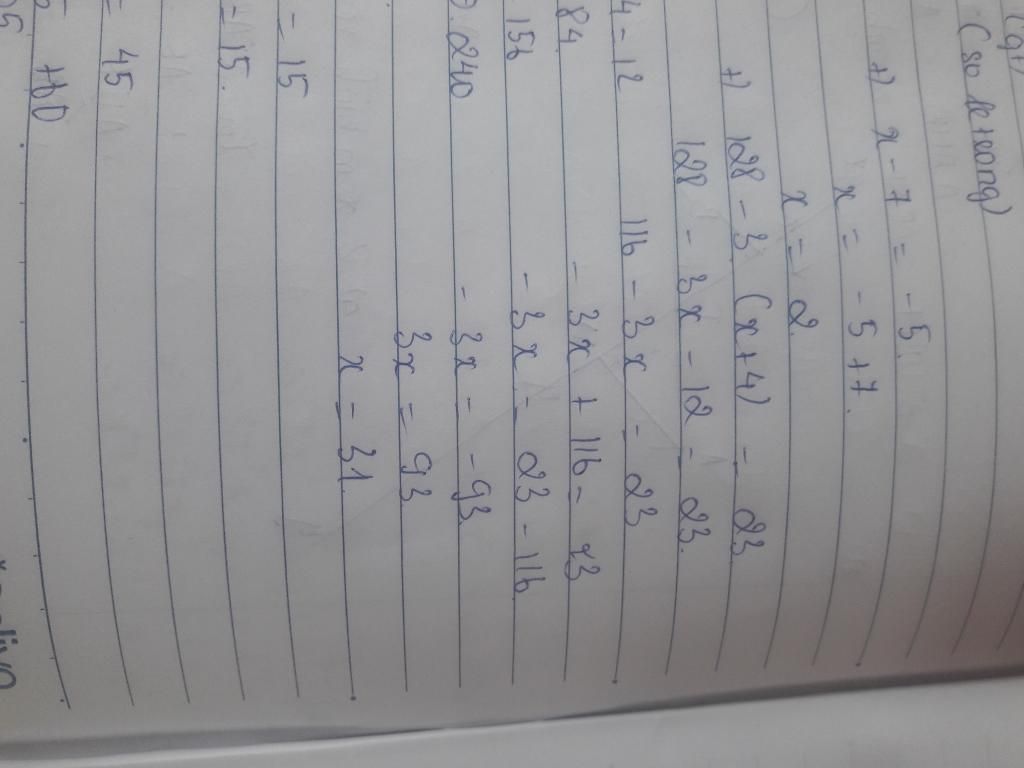 +) x - 7 = -5.
x = -5 + 7.
x = 2.
+) 128 - 3 (x+4) = 23
128 - 3x - 12 = 23.
4 - 12
116 - 3x = 23
84.
- 3x + 116 = 23
156
- 3x = 23 - 116
240
- 3x = -93
3x = 93
x = 31.
= 15
= 15.
= 45